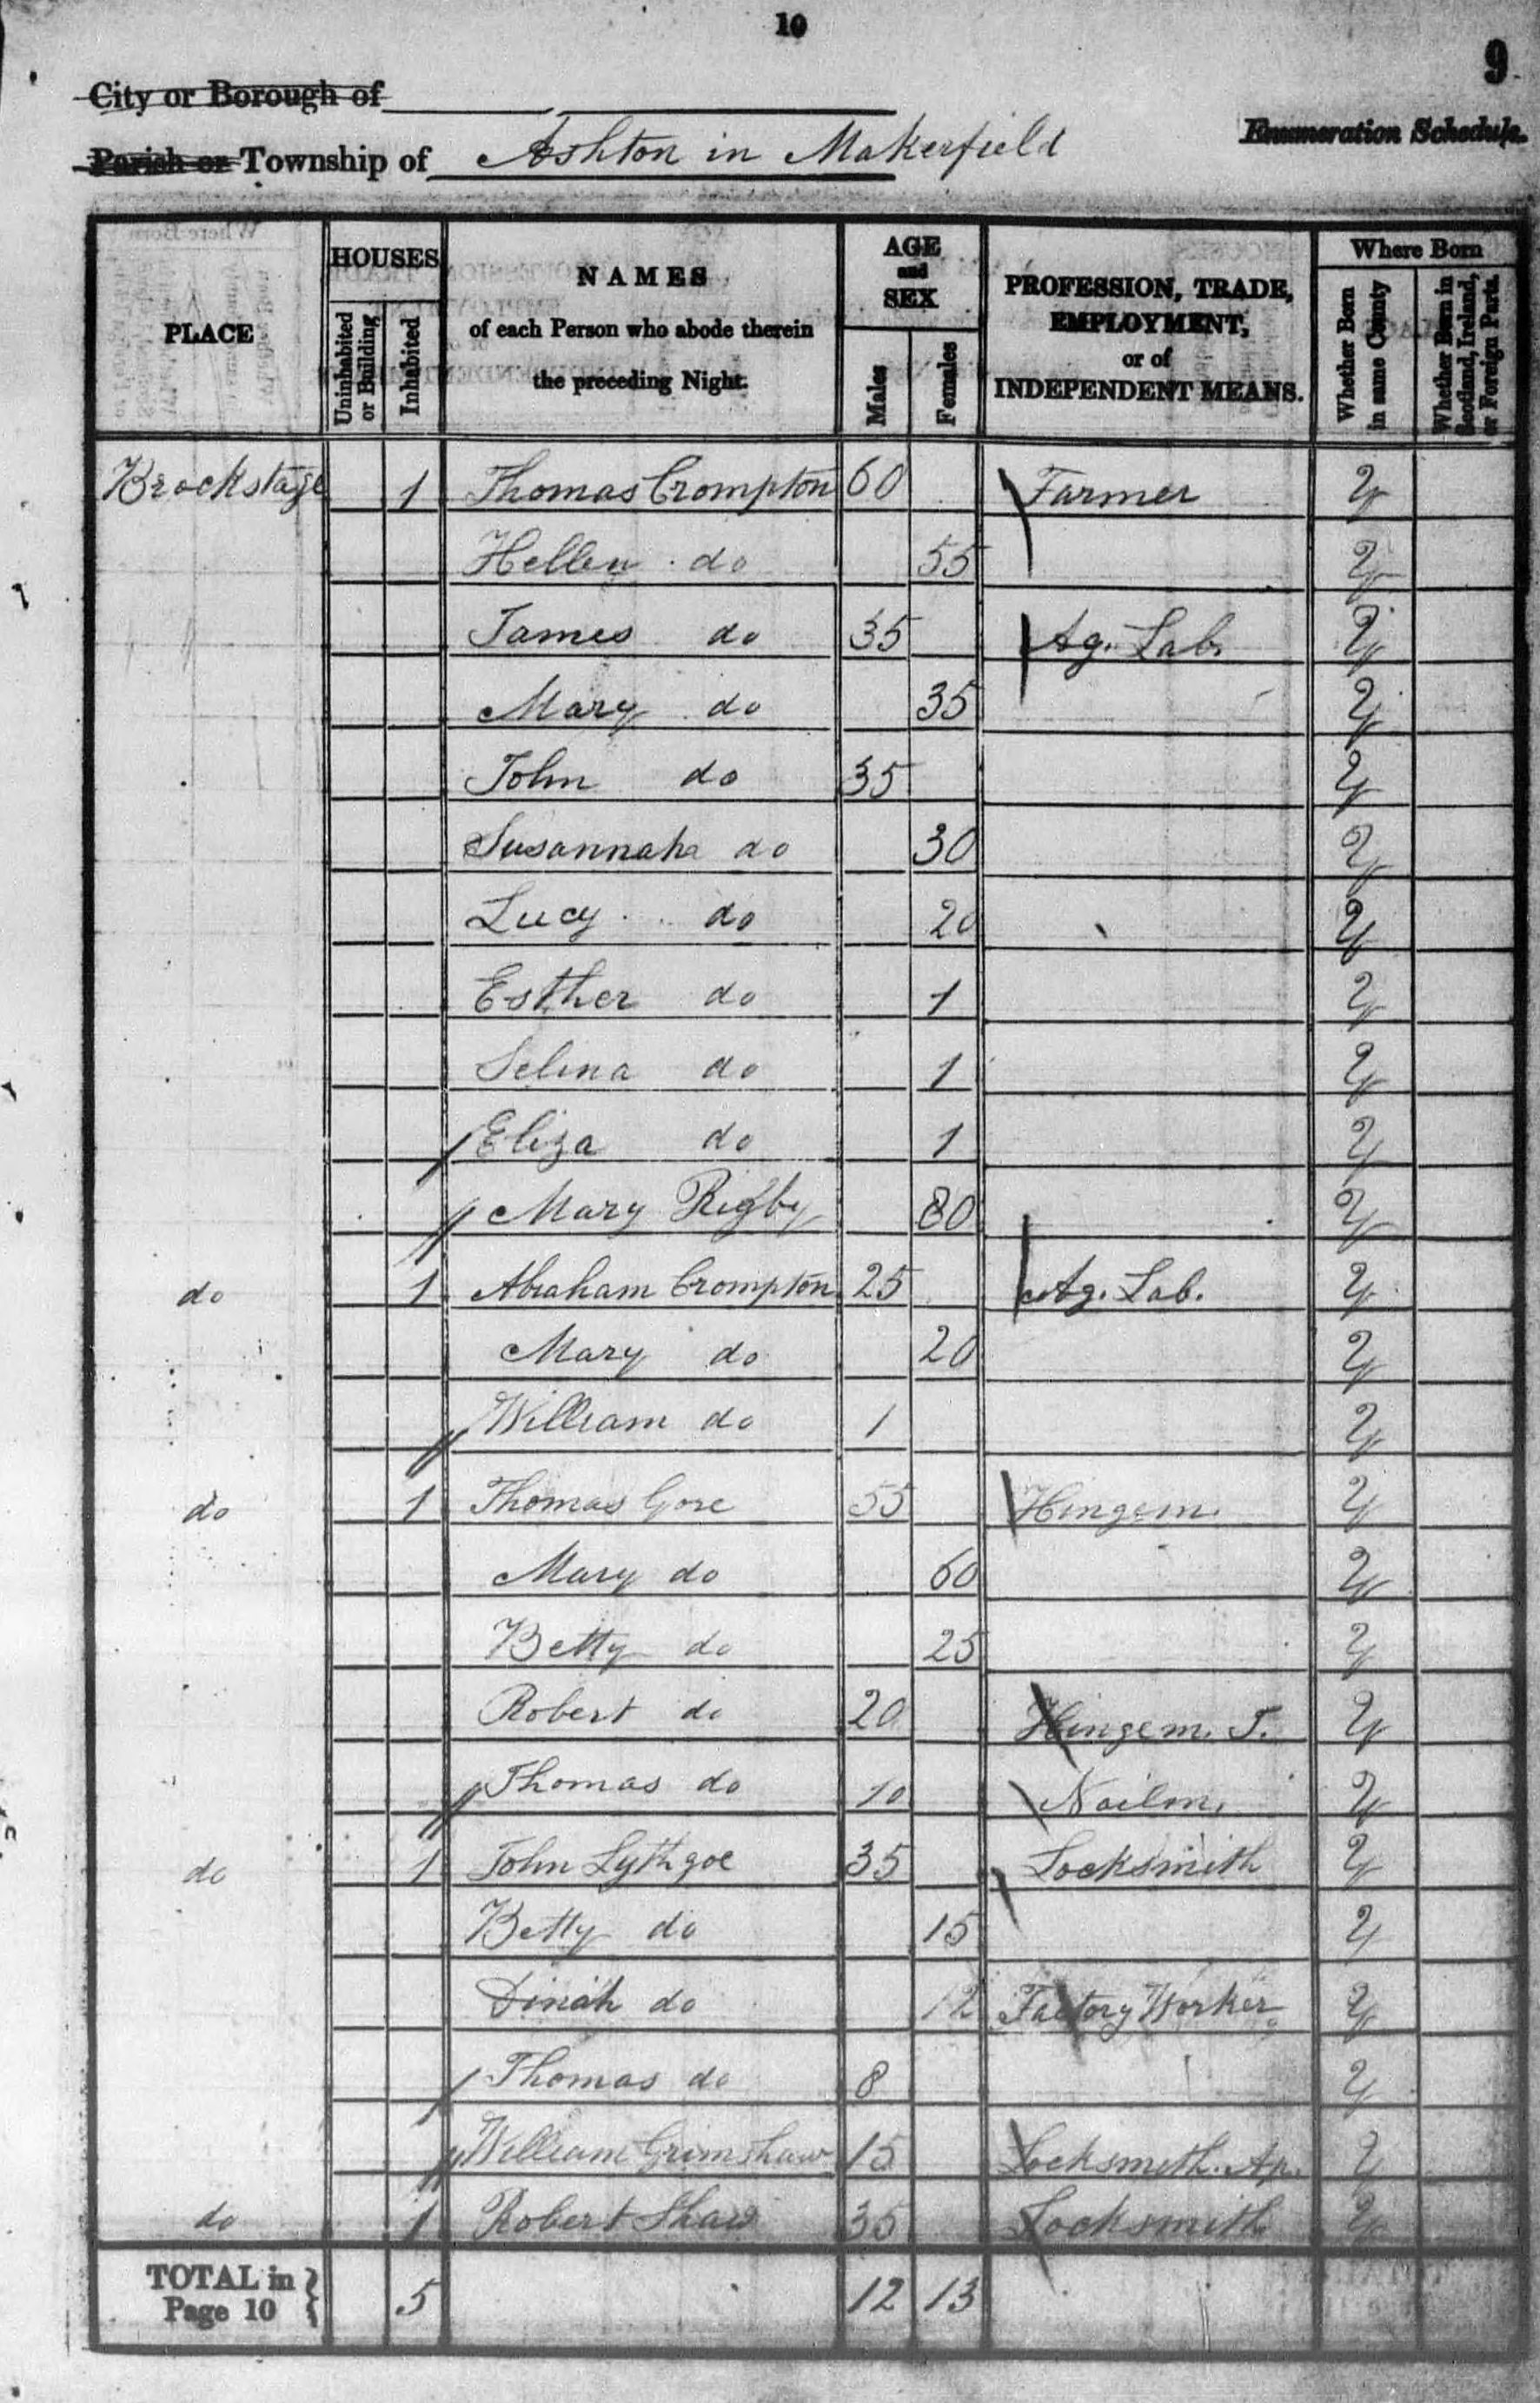 10
9
City or Borough of
Enumeration Schedule.
Parish or Township of Ashton in Makerfield
PLACE
HOUSES
Uninhabited or Building
Inhabited
NAMES
of each Person who abode therein
the preceding Night.
AGE
and
SEX
Males
Females
PROFESSION, TRADE,
EMPLOYMENT,
or of
INDEPENDENT MEANS.
Where Born
Whether Born in same County
Whether Born in Scotland, Ireland, or Foreign Parts.
Brockstage 1 Thomas Crompton 60 Farmer Y
Hellen do 55 Y
James do 35 Ag. Lab. Y
Mary do 35 Y
John do 35 Y
Susannah do 30 Y
Lucy do 20 Y
Esther do 1 Y
Selina do 1 Y
Eliza do 1 Y
Mary Rigby 80 Y
do 1 Abraham Crompton 25 Ag. Lab. Y
Mary do 20 Y
William do 1 Y
do 1 Thomas Gore 55 Hingem. Y
Mary do 60 Y
Betty do 25 Y
Robert do 20 Hingem. J. Y
Thomas do 10 Nailm. Y
do 1 John Lythgoe 35 Locksmith Y
Betty do 15 Y
Dinah do 12 Factory Worker Y
Thomas do 8 Y
William Grimshaw 15 Locksmith. Ap. Y
do 1 Robert Shaw 35 Locksmith Y
TOTAL in
Page 10 5 12 13